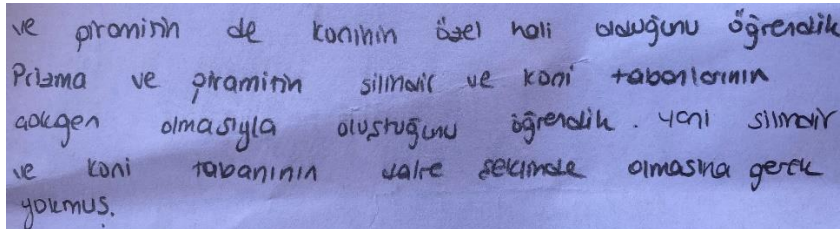 ve piramitin de koninin özel hali olduğunu öğrendik
Prizma ve piramitin silindir ve koni tabanlarının
çokgen olmasıyla oluştuğunu öğrendik. yani silindir
ve koni tabanının daire şeklinde olmasına gerek
yokmuş.